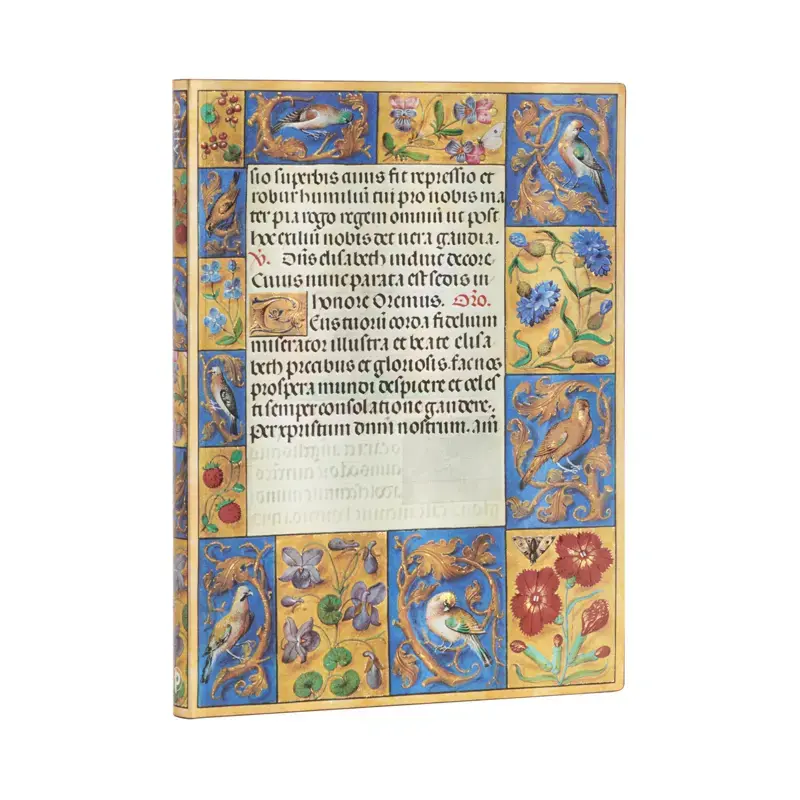 sio superbis cuius fit repressio et
robur humiliū tui pro nobis ma
ter pia rogo regem omniū ut post
hoc exiliū nobis det uera gaudia.
V. Dn̄s elisabeth induit decore
Cuius nunc parata est sedis in
honore Oremus. Or̄o.
DEus tuorū corda fidelium
miserator illustra et beate elisa
beth precibus et gloriosis fac nos
prospera mundi despicere et celes
ti semper consolatione gaudere.
Per xpristum dn̄m nostrum. am̄